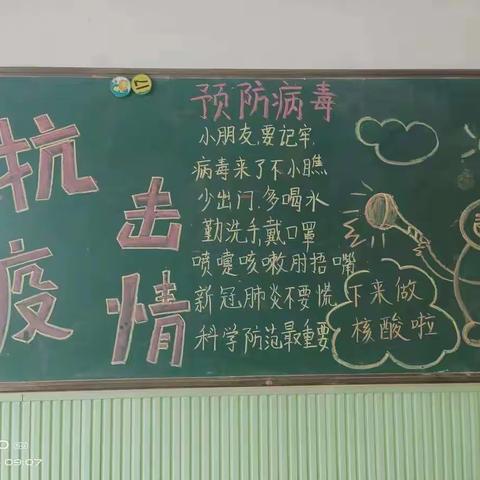 抗击
疫情
预防病毒
小朋友,要记牢.
病毒来了不小瞧
少出门.多喝水
勤洗手,戴口罩
喷嚏咳嗽用捂嘴
新冠肺炎不要慌
科学防范最重要
下来做
核酸啦
09:07